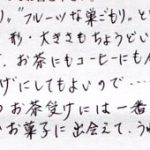 り。"フルーツな巣ごもり"と
、形・大きさもちょうどい
、お茶にもコーヒーにも
げにしてもよいので・・・
お茶受けには一番
お菓子に出会えて、う